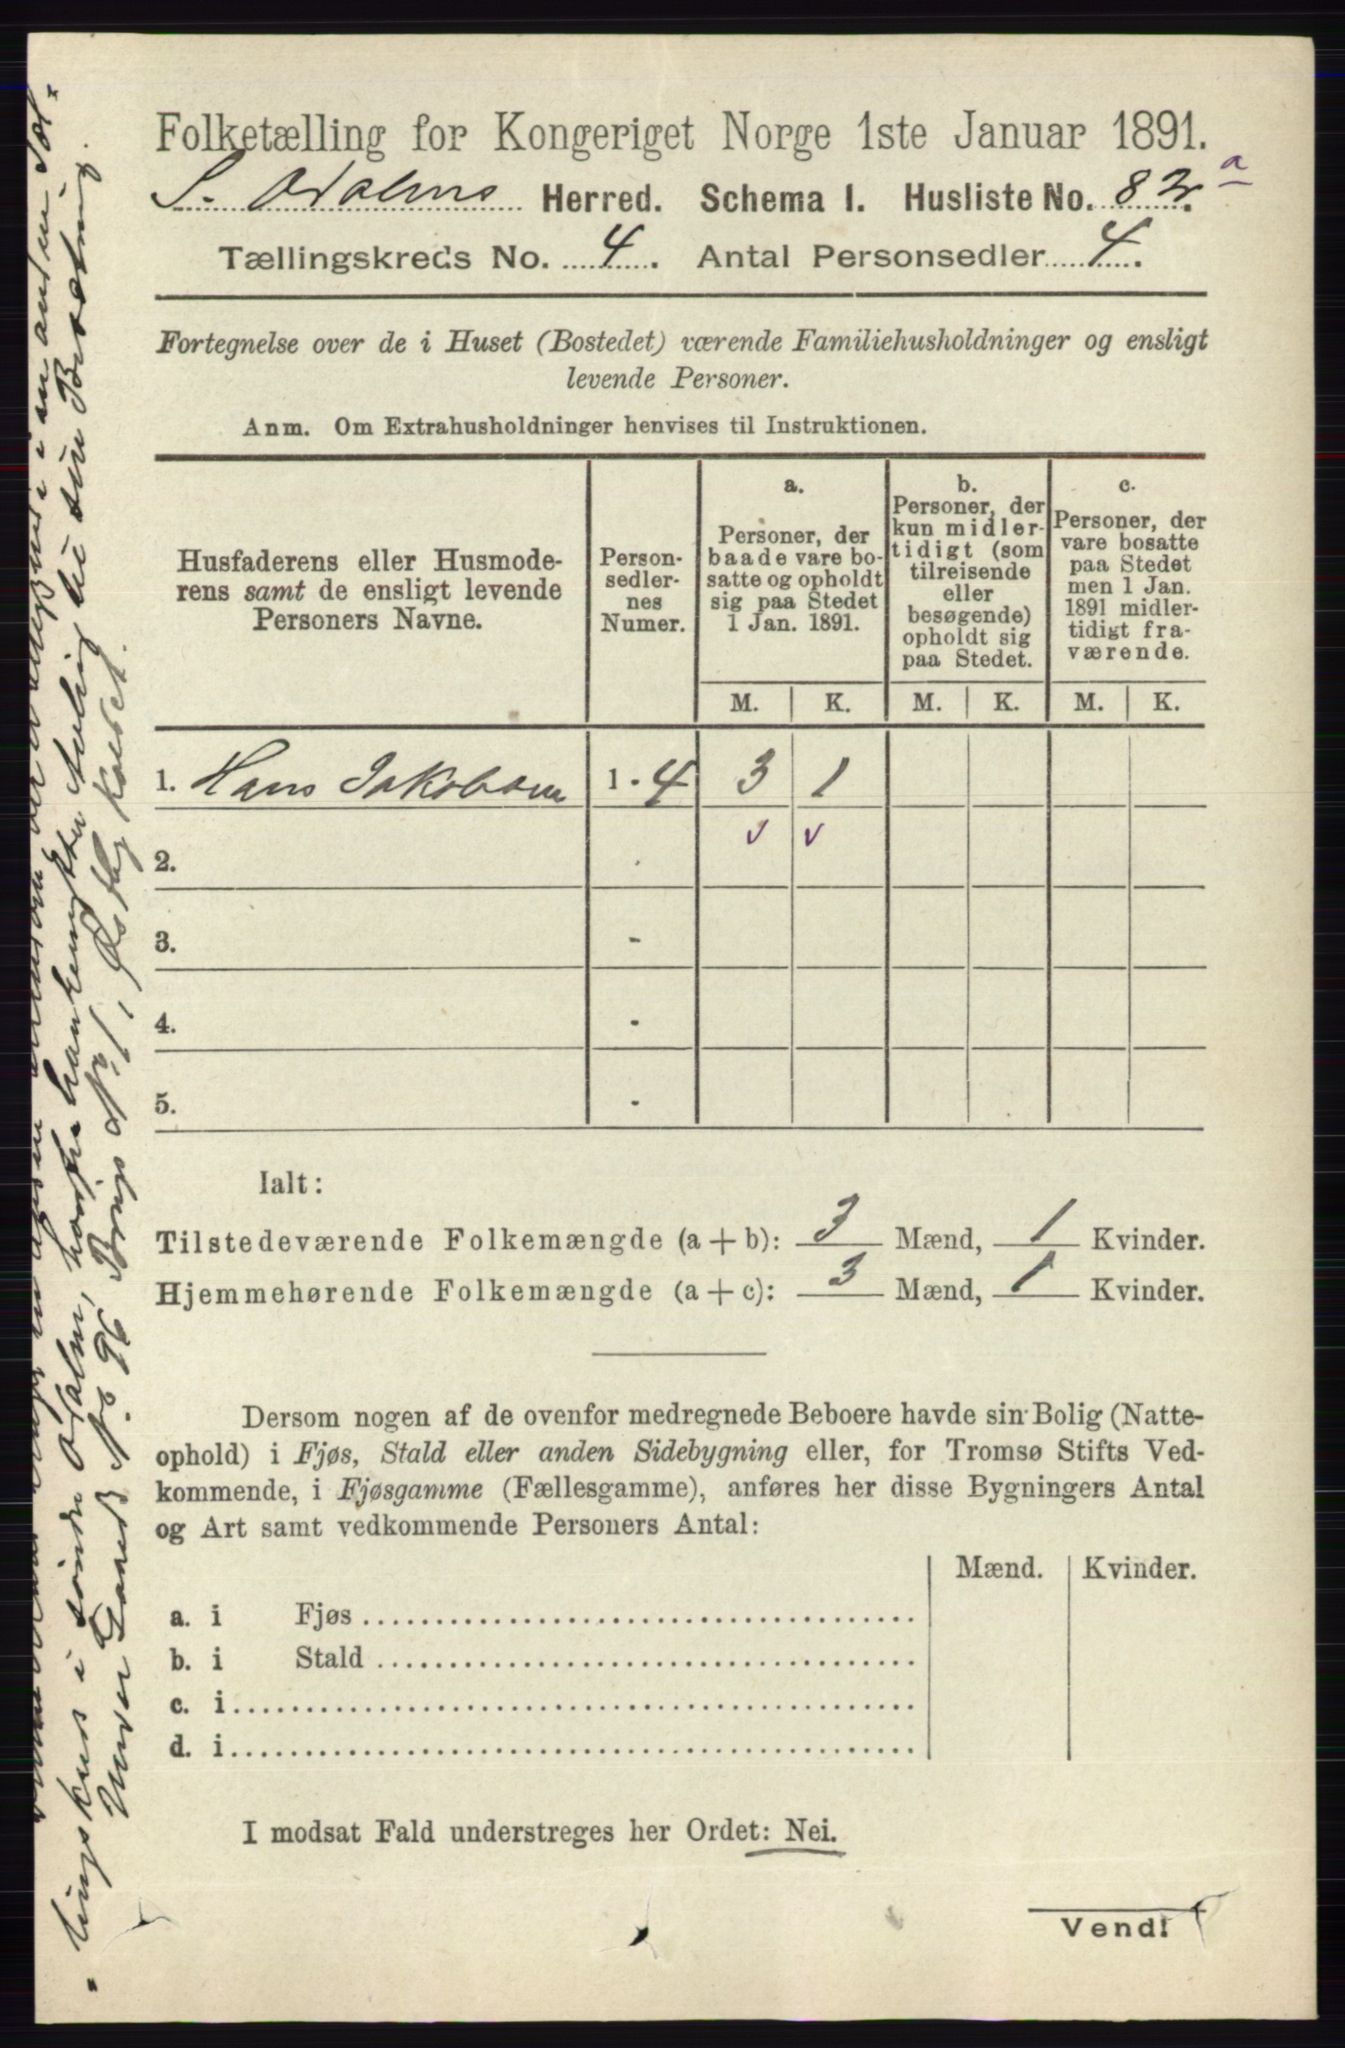 Folketælling for Kongeriget Norge 1ste Januar 1891.
S. Odalens Herred. Schema I. Husliste No. 82 a
Tællingskreds No. 4. Antal Personsedler 4.
Fortegnelse over de i Huset (Bostedet) værende Familiehusholdninger og ensligt
levende Personer.
Anm. Om Extrahusholdninger henvises til Instruktionen.
Husfaderens eller Husmode-
rens samt de ensligt levende
Personers Navne.
Person-
sedler-
nes
Numer.
a.
Personer, der
baade vare bo-
satte og opholdt
sig paa Stedet
1 Jan. 1891.
b.
Personer, der
kun midler-
tidigt (som
tilreisende
eller
besøgende)
opholdt sig
paa Stedet.
c.
Personer, der
vare bosatte
paa Stedet
men 1 Jan.
1891 midler-
tidigt fra-
værende.
M. K. M. K. M. K.
1. Hans Jakobsen 1 - 4 3 1
2. -
3. -
4. -
5. -
Ialt:
Tilstedeværende Folkemængde (a + b): 3 Mænd, 1 Kvinder.
Hjemmehørende Folkemængde (a + c): 3 Mænd, 1 Kvinder.
Dersom nogen af de ovenfor medregnede Beboere havde sin Bolig (Natte-
ophold) i Fjøs, Stald eller anden Sidebygning eller, for Tromsø Stifts Ved-
kommende, i Fjøsgamme (Fællesgamme), anføres her disse Bygningers Antal
og Art samt vedkommende Personers Antal:
Mænd. Kvinder.
a. i Fjøs
b. i Stald
c. i
d. i
I modsat Fald understreges her Ordet: Nei.
Vend!
i en anden Tæl-
-lingskreds i søndre Odalen, hvorfra han Avling til sin Besætning.
Under Gaards No. 96, Brugs No. 1, kaldet.